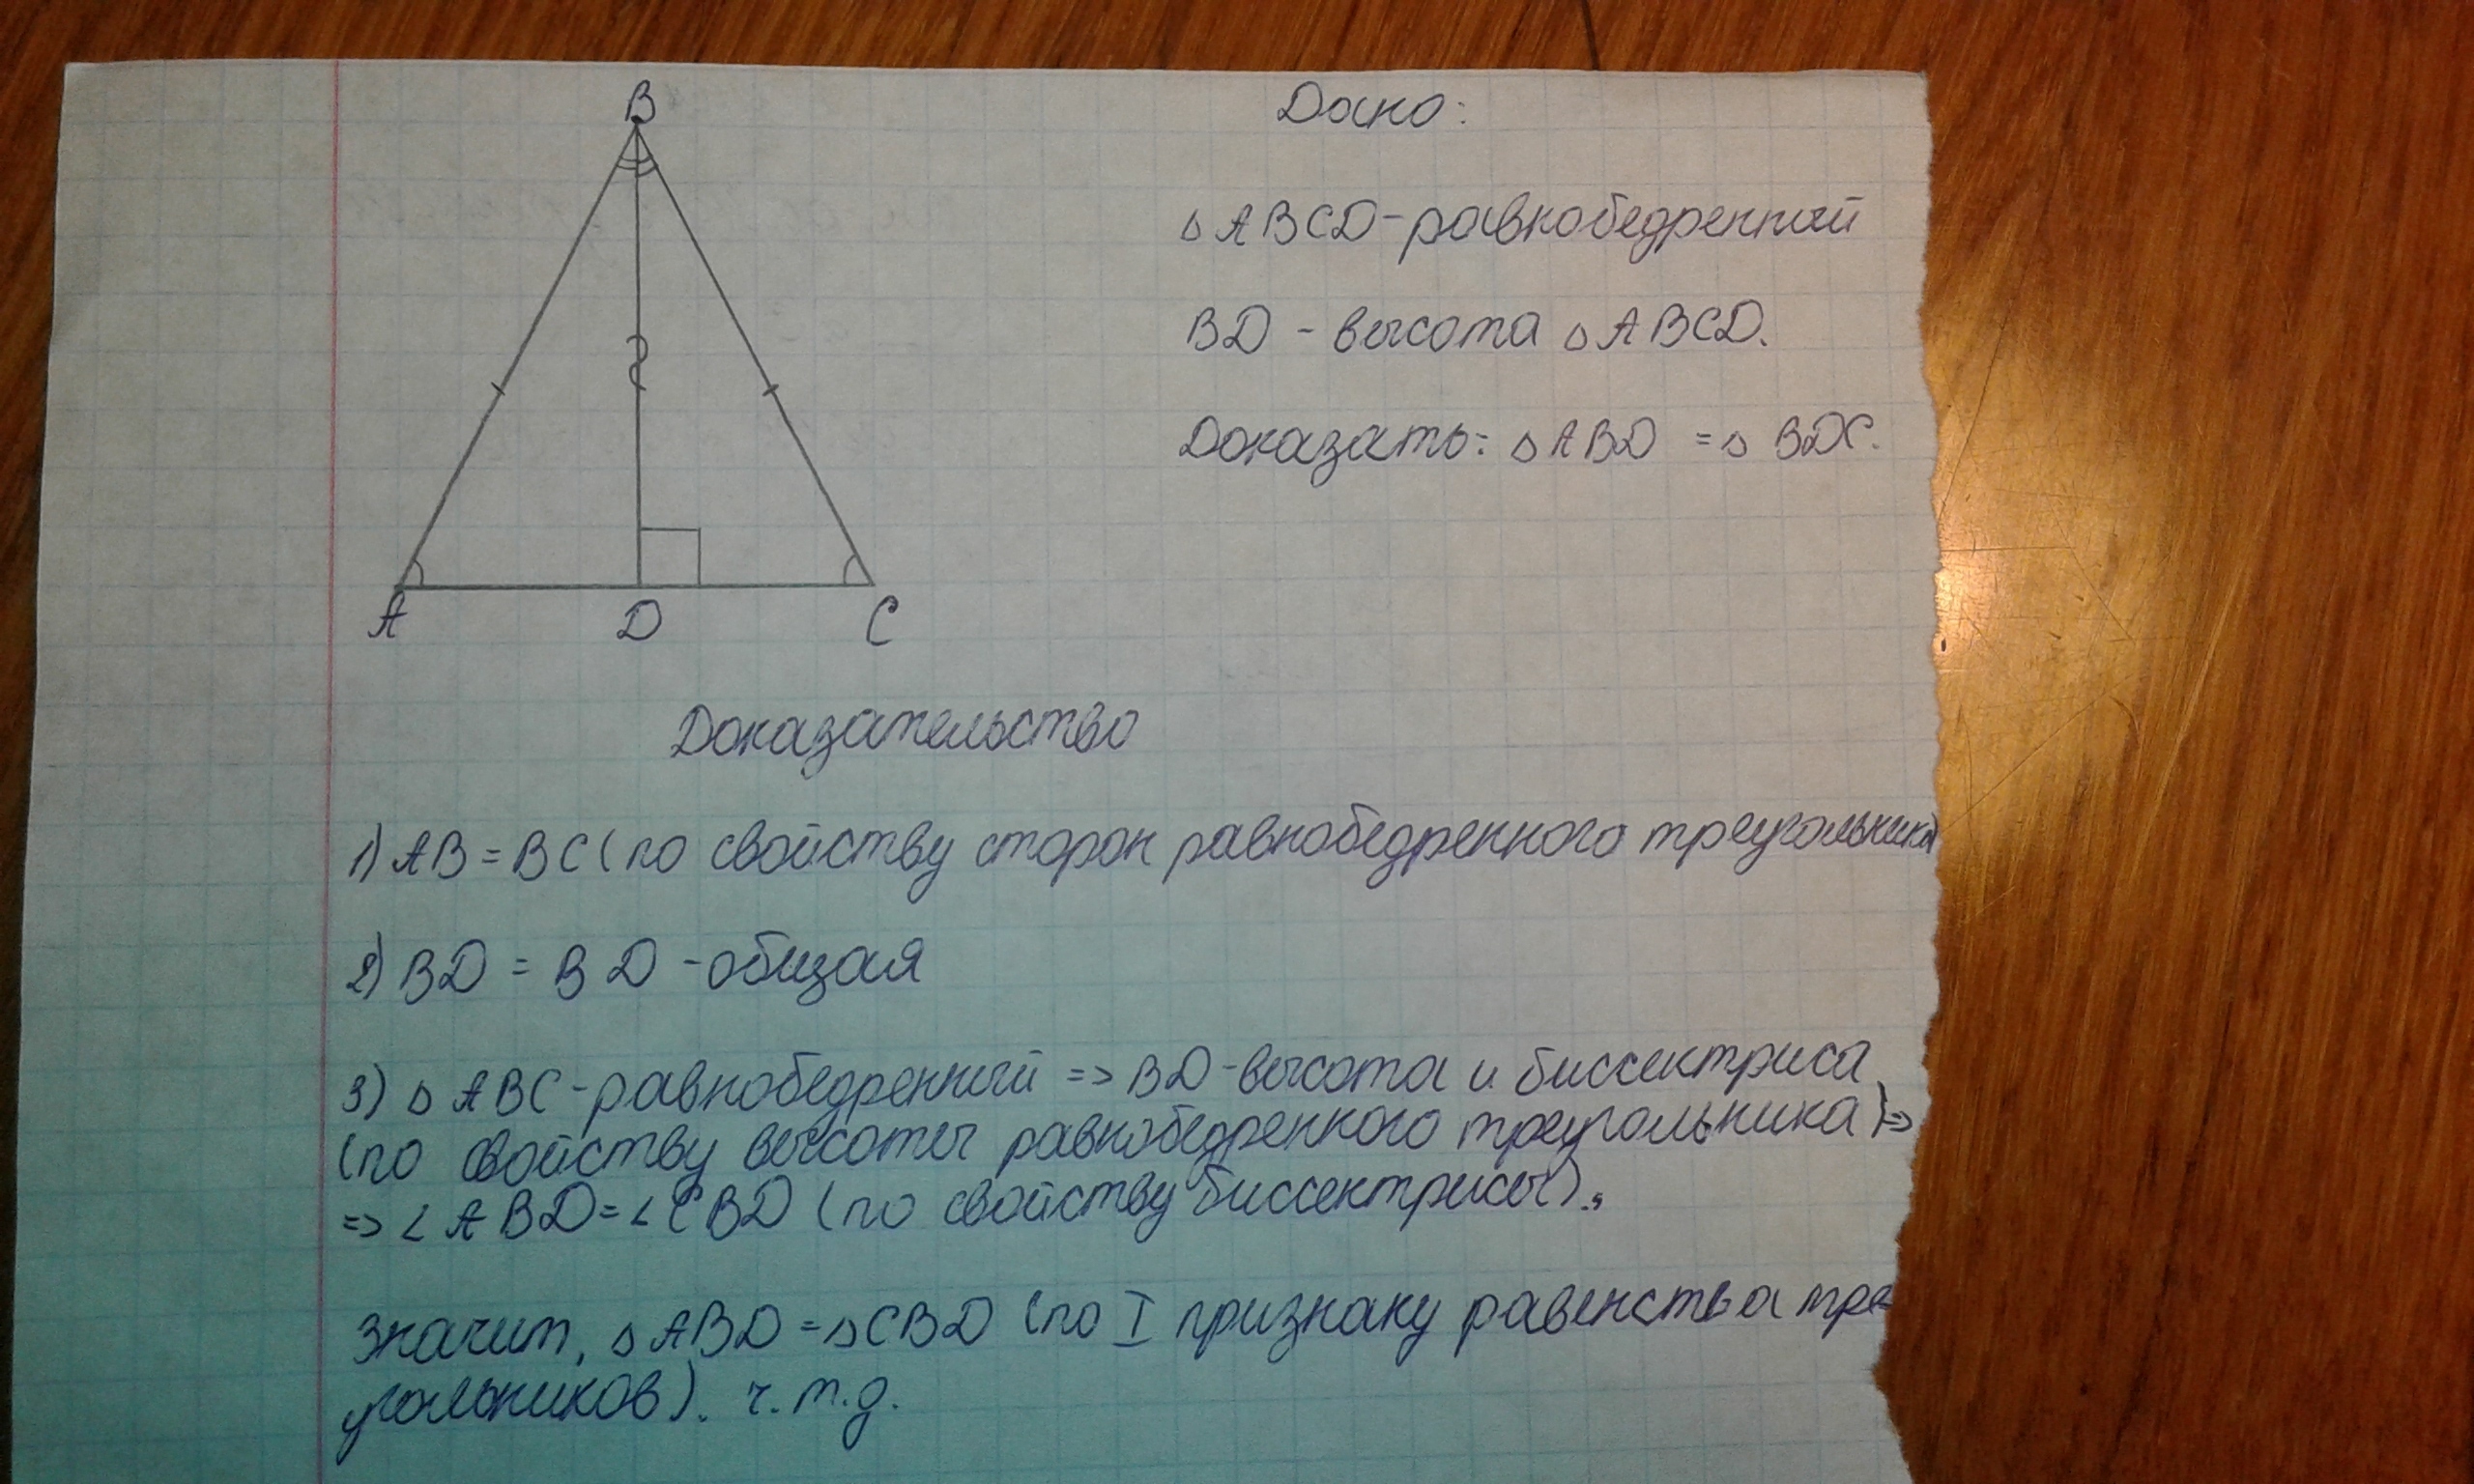 B
A
D
C
Дано:
△ABCD-равнобедренный
BD - высота △ABCD.
Доказать: △ABD = △ BDC.
Доказательство
1) AB = BC (по свойству сторон равнобедренного треугольника
2) BD = BD - общая
3) △ ABC-равнобедренный => BD-высота и биссектриса
(по свойству высоты равнобедренного треугольника) =>
=> ∠ ABD = ∠ CBD (по свойству биссектрисы).,
Значит, △ ABD = △CBD (по I признаку равенства тре
угольников). ч.т.д.